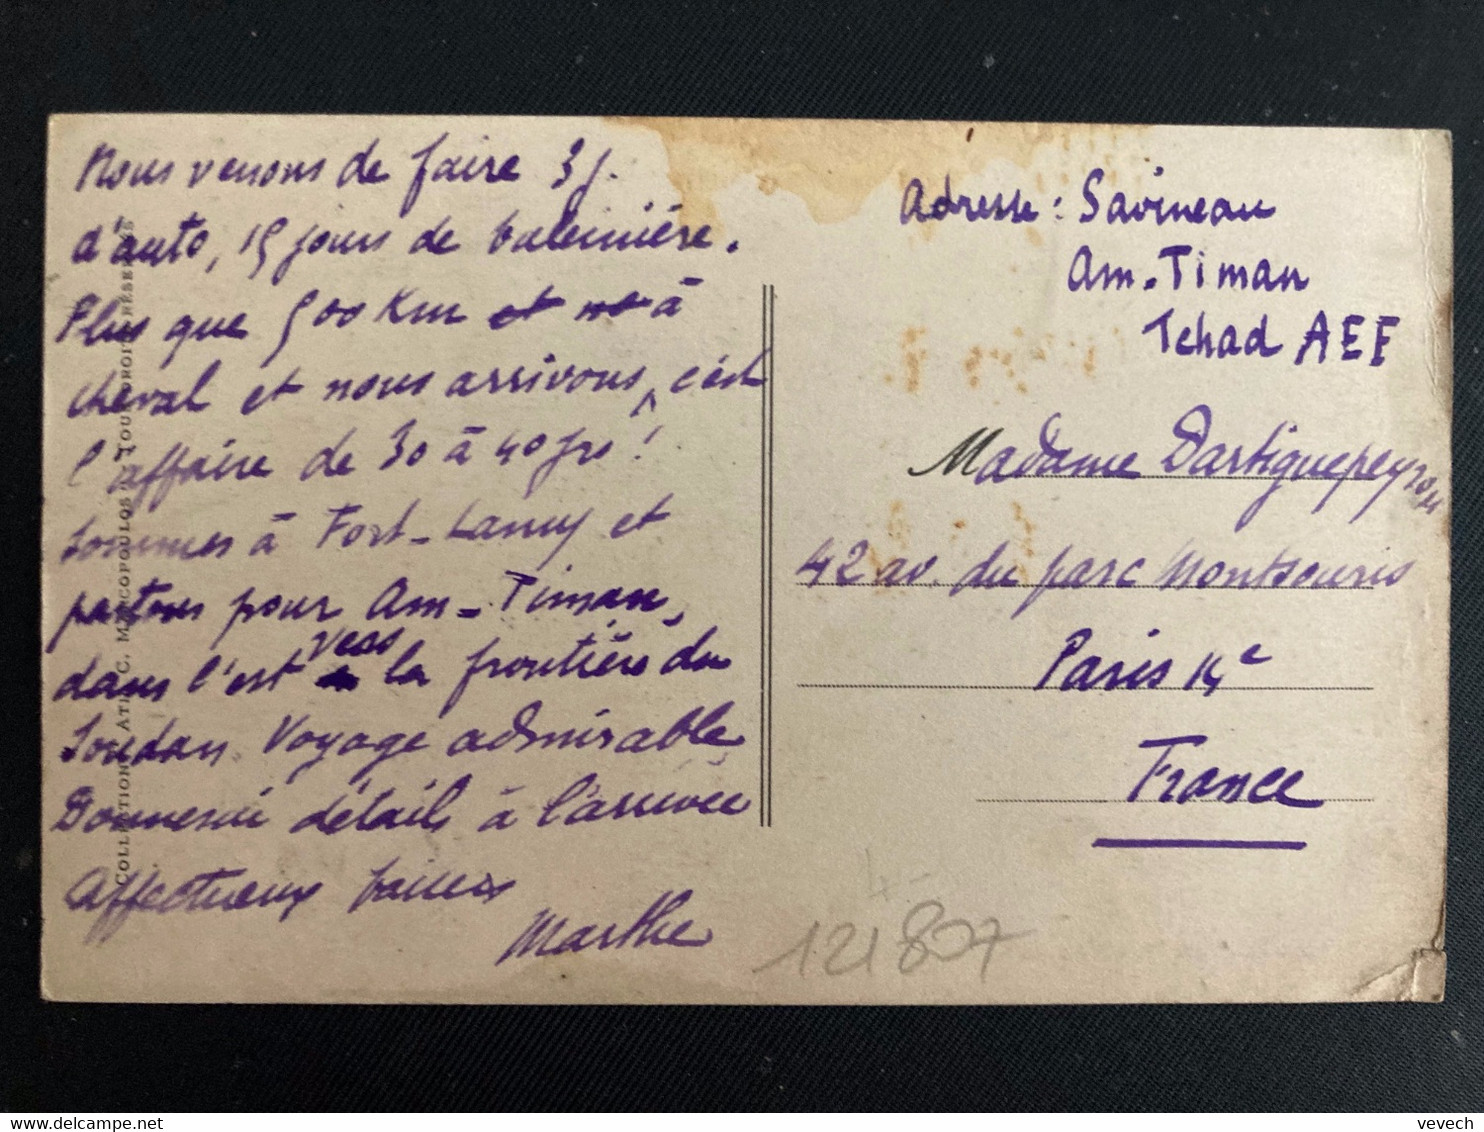 Nous venons de faire 3 j.
d'auto, 15 jours de baleinière.
Plus que 500 Km et ne à
cheval et nous arrivons, c'est
l'affaire de 30 à 40 jrs !
Sommes à Fort-Lamy et
partons pour Am-Timan,
dans l'est vers la frontière du
Soudan. Voyage admirable
Donnerai détails à l'arrivée
Affectueux baisers
Marthe
COLLECTION ... C. MARCOPOULOS TOUS DROITS RÉSERVÉS
Adresse : Savineau
Am-Timan
Tchad AEF
Madame Dartiguepeyrou
42 av. du parc Montsouris
Paris 14e
France
121807
vevech